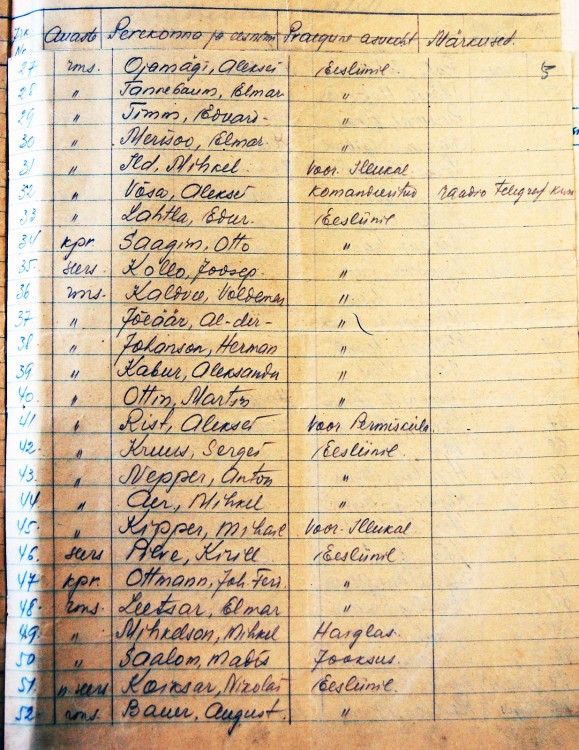 Jrk. Nr. Auaste Perekonna ja eesnimi Praegune asukoht Märkused.
5
27 rms. Ojamägi, Aleksei Eesliinil.
28 " Tannebaum, Elmar "
29 " Timm, Eduard- "
30 " Merisoo, Elmar. "
31 " Ild, Mihkel. Voor. Illukal
32 " Võsa, Aleksei Komandeeritud raadio Telegraf
33 " Lahtla, Edur. Eesliinil
34 kpr. Saagim, Otto "
35 sers. Kollo, Joosep. "
36 rms. Voldemar "
37 " Jõeäär, Al-der- "
38 " Johanson, Herman "
39 " Kabur, Aleksander "
40. " Ottin, Martin "
41 " Rist, Aleksei Voor
42. " Kruus, Sergei Eesliinil.
43. " Nepper, Anton "
44. " Mihkel "
45. " Kipper, Mihkel Voor. Illukal
46. sers Kirill Eesliinil
47 kpr. Ottmann, Joh. "
48. rms. Leetsar, Elmar "
49. " Mihkelson, Mihkel Haiglas.
50 " Saalom, Madis Jooksus.
51. n. sers Nikolai Eesliinil.
52. rms. Bauer, August. "